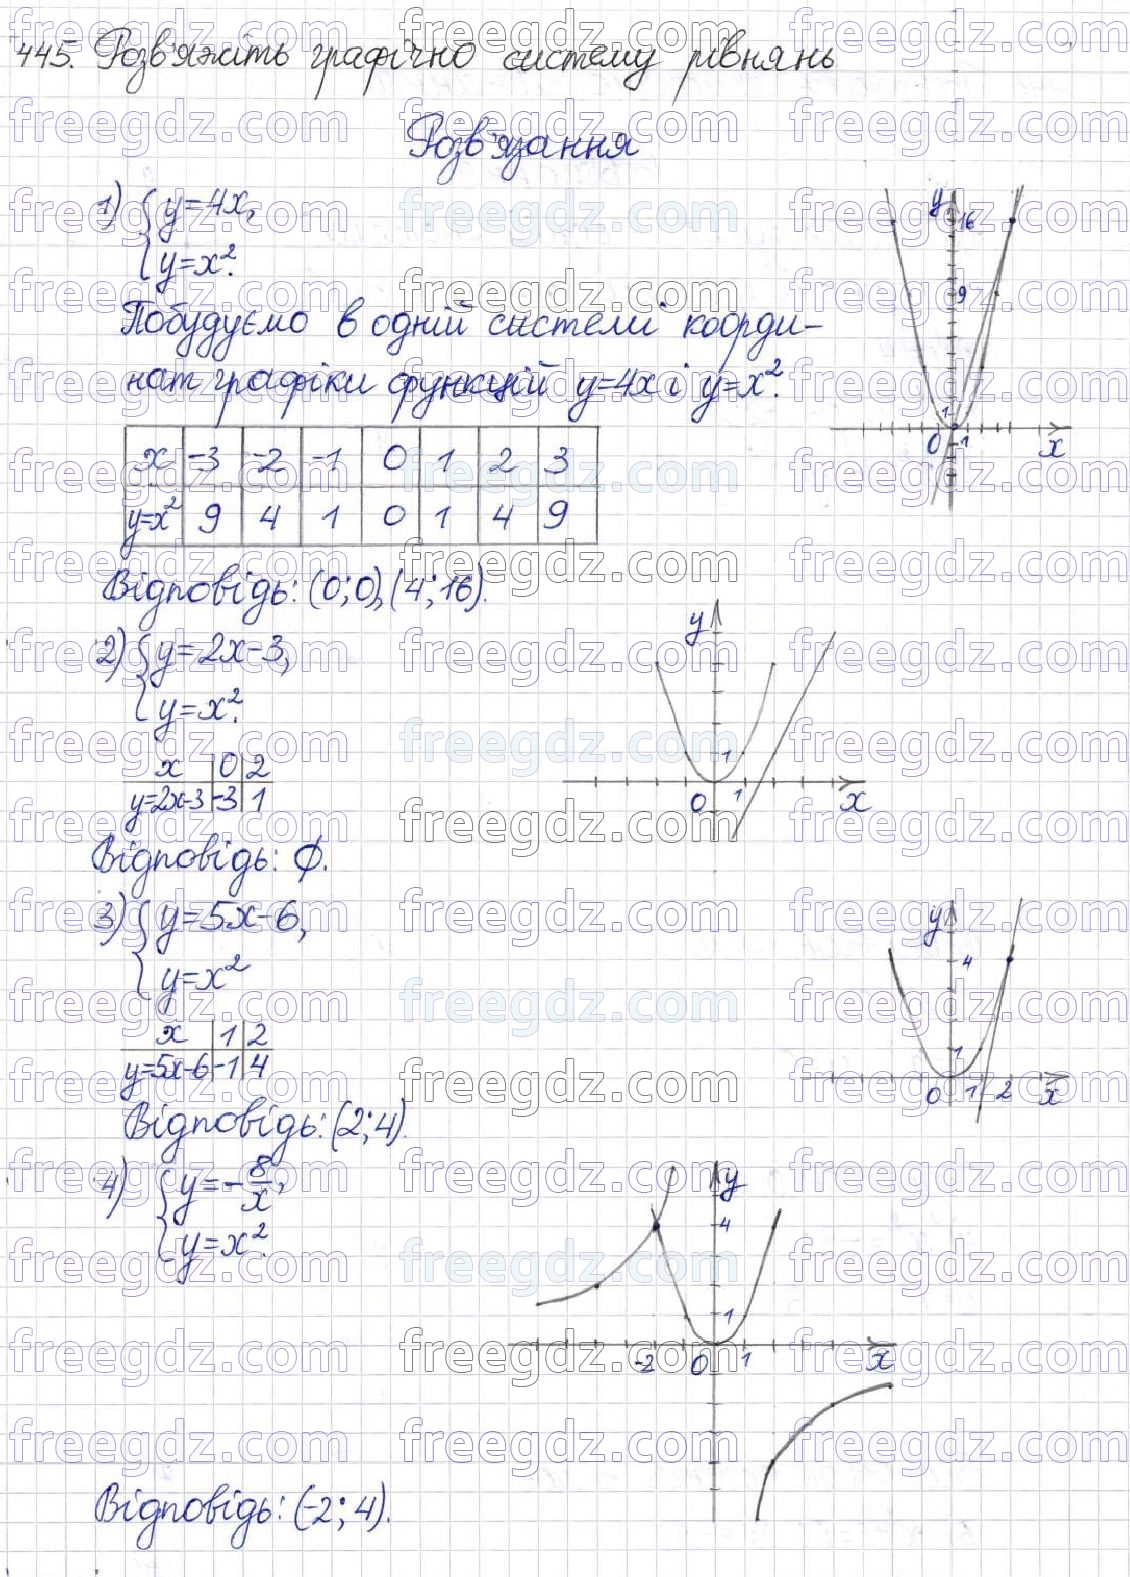 445. Розв'яжіть графічно систему рівнянь
Розв'язання
1) { y=4x,
y=x².
Побудуємо в одній системі коорди-
нат графіки функцій y=4x і y=x².
x -3 -2 -1 0 1 2 3
y=x² 9 4 1 0 1 4 9
Відповідь: (0;0), (4;16).
y
16
9
1
0 1 x
2) { y=2x-3,
y=x².
x 0 2
y=2x-3 -3 1
Відповідь: ∅.
y
1
0 1 x
3) { y=5x-6,
y=x²
x 1 2
y=5x-6 -1 4
Відповідь: (2;4).
y
4
1
0 1 2 x
4) { y=-8/x,
y=x².
y
4
1
-2 0 1 x
Відповідь: (-2;4).
freegdz.com